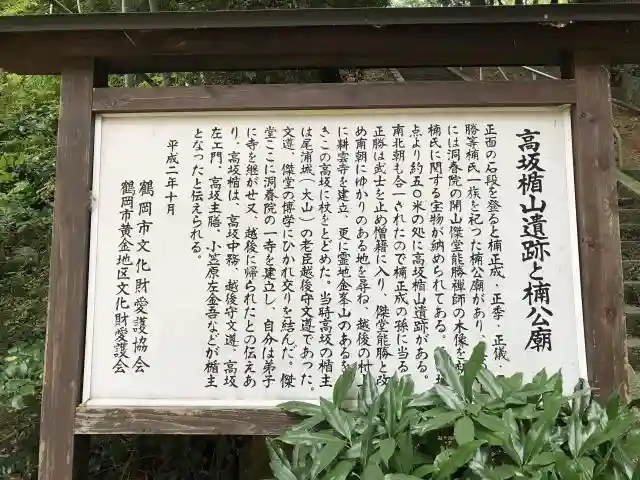 高坂楯山遺跡と楠公廟
正面の石段を登ると楠正成、正季、正儀、
勝等楠氏一族を祀った楠公廟があり、
には洞春院の開山傑堂能勝禅師の木像を
楠氏に関する宝物が納められてある。
点より約五〇米の処に高坂楯山遺跡がある。
南北朝も合一されたので楠正成の孫に当る
正勝は武士を止め僧籍に入り、傑堂能勝と改
め南朝にゆかりのある地を尋ね、越後の村
に耕雲寺を建立、更に霊地金峯山のあるを
きこの高坂に杖をとどめた。当時高坂の楯主
は尾浦城(大山)の老臣越後守文遵であった。
文遵、傑堂の博学にひかれ交りを結んだ。傑
堂ここに洞春院の一寺を建立し、自分は弟子
に寺を継がせ又、越後に帰られたとの伝えあ
り、高坂楯は、高坂中務、越後守文遵、高坂
左ヱ門、高坂主膳、小笠原左金吾などが楯主
となったと伝えられる。
平成二年十月
鶴岡市文化財愛護協会
鶴岡市黄金地区文化財愛護会